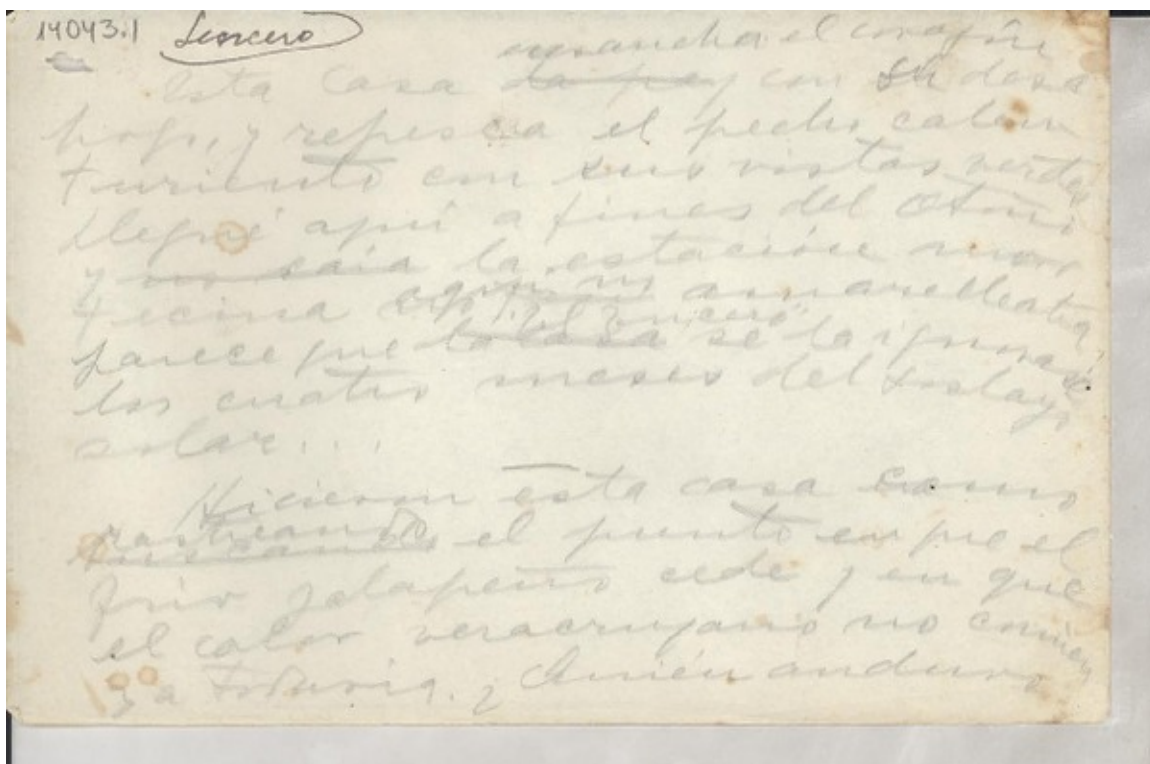 14043.1 Lencero
ensancha el corazón
Esta casa la paz con su desa
hogo, y refresca el pecho calen
turiento con sus vistas verdes
Llegué aquí a fines del otoño
y no caía la estación mor
tecina con su amarillentar,
parece que la casa se la ignorase
los cuatro meses del soslayo
solar...
Hicieron esta casa como
rastreando
buscando el punto en que el
frío jalapeño cede y en que
el calor veracruzano no comien
za todavía. ¿Quién anduvo